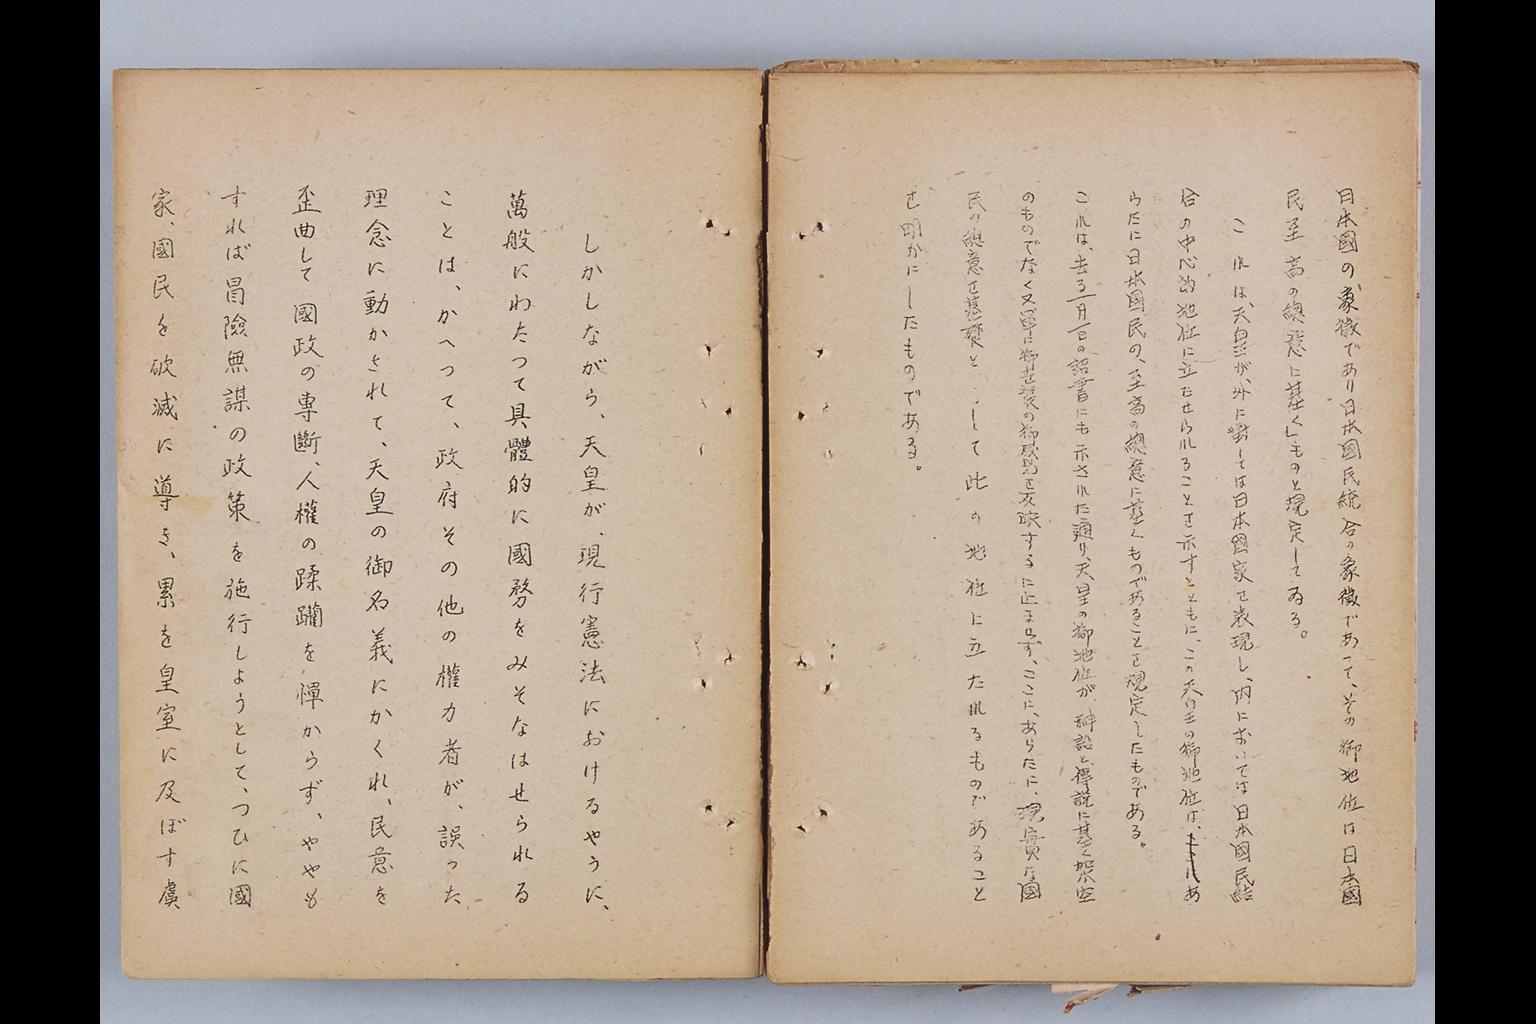 日本國の象徴であり日本國民統合の象徴であつて、その御地位は日本國
民至高の總意に基く」ものと規定してゐる。
これは、天皇が、外に對しては日本國家を表現し、内においては日本國民結
合の中心的地位に立たせられることを示すとともに、この天皇の御地位は、あ
らたに日本國民の、至高の總意に基くものであることを規定したものである。
これは、去る一月一日の詔書にも示された通り、天皇の御地位が、神話と傳說に基く架空
のものでなく又單に御世襲の御成果を反映するに止まらず、ここに、あらたに、現實な國
民の總意を基礎として此の地位に立たれるものであること
を明かにしたものである。
しかしながら、天皇が、現行憲法におけるやうに、
萬般にわたつて具體的に國務をみそなはせられる
ことは、かへつて、政府その他の權力者が、誤つた
理念に動かされて、天皇の御名義にかくれ、民意を
歪曲して國政の專斷、人權の蹂躙を憚からず、ややも
すれば冒險無謀の政策を施行しようとして、つひに國
家、國民を破滅に導き、累を皇室に及ぼす虞